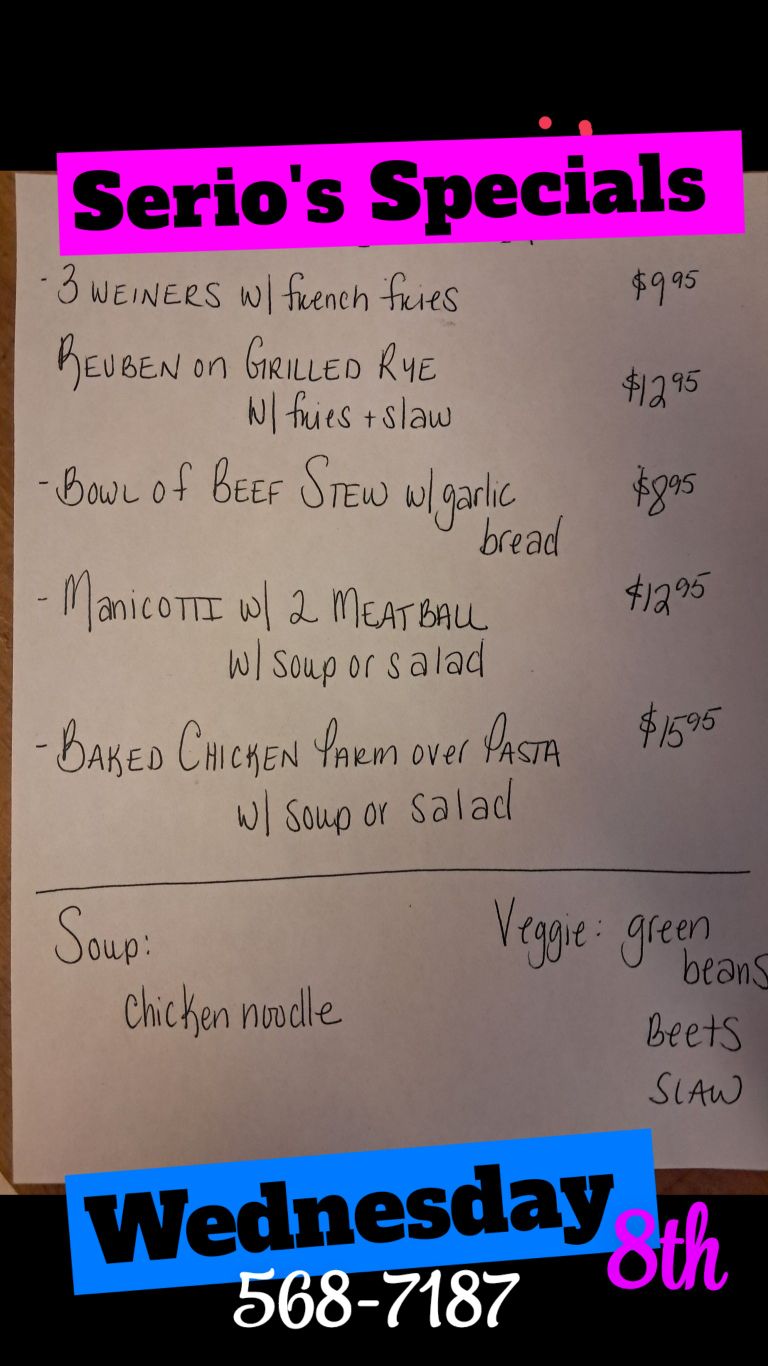 Serio's Specials
- 3 WEINERS w/ french fries $9.95
REUBEN on GRILLED RYE $12.95
w/ fries + slaw
- BOWL of BEEF STEW w/ garlic $8.95
bread
- ManicoTTI w/ 2 MEATBALL $12.95
w/ soup or salad
- BAKED CHICKEN PARM over PASTA $15.95
w/ soup or salad
Soup: Veggie: green
beans
chicken noodle
Beets
SLAW
Wednesday
8th
568-7187